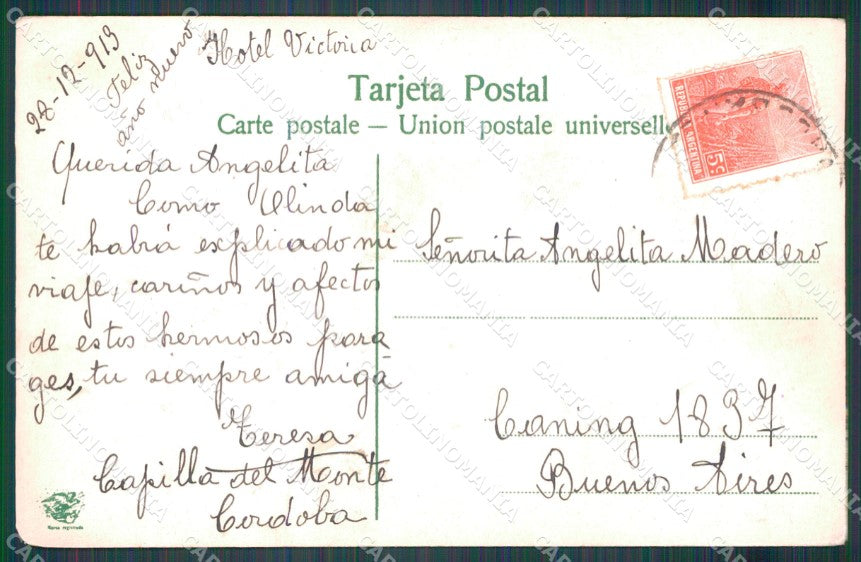 28-12-913
Feliz
año nuevo
Hotel Victoria
Tarjeta Postal
Carte postale — Union postale universelle
REPUBLICA ARGENTINA
5c.
Querida Angelita
Como Olinda
te habrá explicado mi
viaje, cariños y afectos
de estos hermosos para
ges, tu siempre amiga
Teresa
Capilla del Monte
Cordoba
Señorita Angelita Madero
Caning 1837
Buenos Aires
Marca registrada
CARTOLINOMANIA